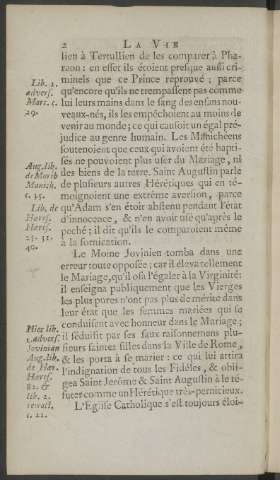 2 LA VIE
lien à Tertullien de les comparer à Pha-
raon : en effet ils étoient presque aussi cri-
minels que ce Prince réprouvé ; parce
qu'encore qu'ils ne trempassent pas comme
lui leurs mains dans le sang des enfans nou-
veaux-nés, ils les empêchoient au moins de
venir au monde ; ce qui causoit un égal pré-
judice au genre humain. Les Manichéens
soutenoient que ceux qui avoient été bapti-
sés ne pouvoient plus user du Mariage, ni
des biens de la terre. Saint Augustin parle
de plusieurs autres Hérétiques qui en té-
moignoient une extrême aversion, parce
qu'Adam s'en étoit abstenu pendant l'état
d'innocence, & n'en avoit usé qu'après le
peché ; il dit qu'ils le comparoient même
à la fornication.
Le Moine Jovinien tomba dans une
erreur toute opposée ; car il éleva tellement
le Mariage, qu'il osa l'égaler à la Virginité :
il enseigna publiquement que les Vierges
les plus pures n'ont pas plus de mérite dans
leur état que les femmes mariées qui se
conduisent avec honneur dans le Mariage ;
il séduisit par ses faux raisonnemens plu-
sieurs saintes filles dans la Ville de Rome,
& les porta à se marier : ce qui lui attira
l'indignation de tous les Fidéles, & obli-
gea Saint Jerôme & Saint Augustin à le ré-
futer comme un Hérétique très-pernicieux.
L'Eglise Catholique s'est toujours éloi-
Lib. 1.
advers.
Marc. c.
29.
Aug. lib.
de Morib.
Manich.
c. 35.
Lib. de
Hares.
Haref.
25. 31.
40.
Hier. lib.
1. advers.
Jovinian
Aug. lib.
de Har.
Haref.
82. &
lib. 2.
retract.
c. 22.